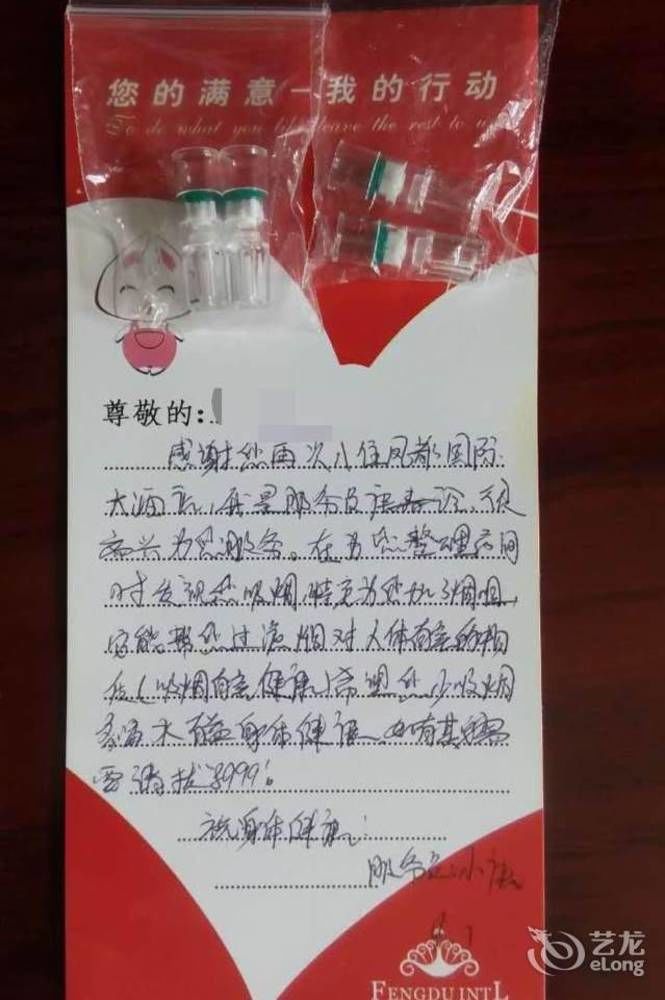 您的满意—我的行动
To do what you like leave the rest to us
尊敬的:
感谢您再次入住凤都国际
大酒店,我是服务员唐春玲,很
高兴为您服务。在为您整理房间
时发现您吸烟,特意为您加了烟咀,
它能帮您过滤烟对人体有害的物
质(吸烟有害健康)希望您少吸烟
多喝水有益身体健康,如有其它需
要请拨打8999!
祝身体健康!
服务员:小唐
FENGDU INT'L
艺龙
eLong